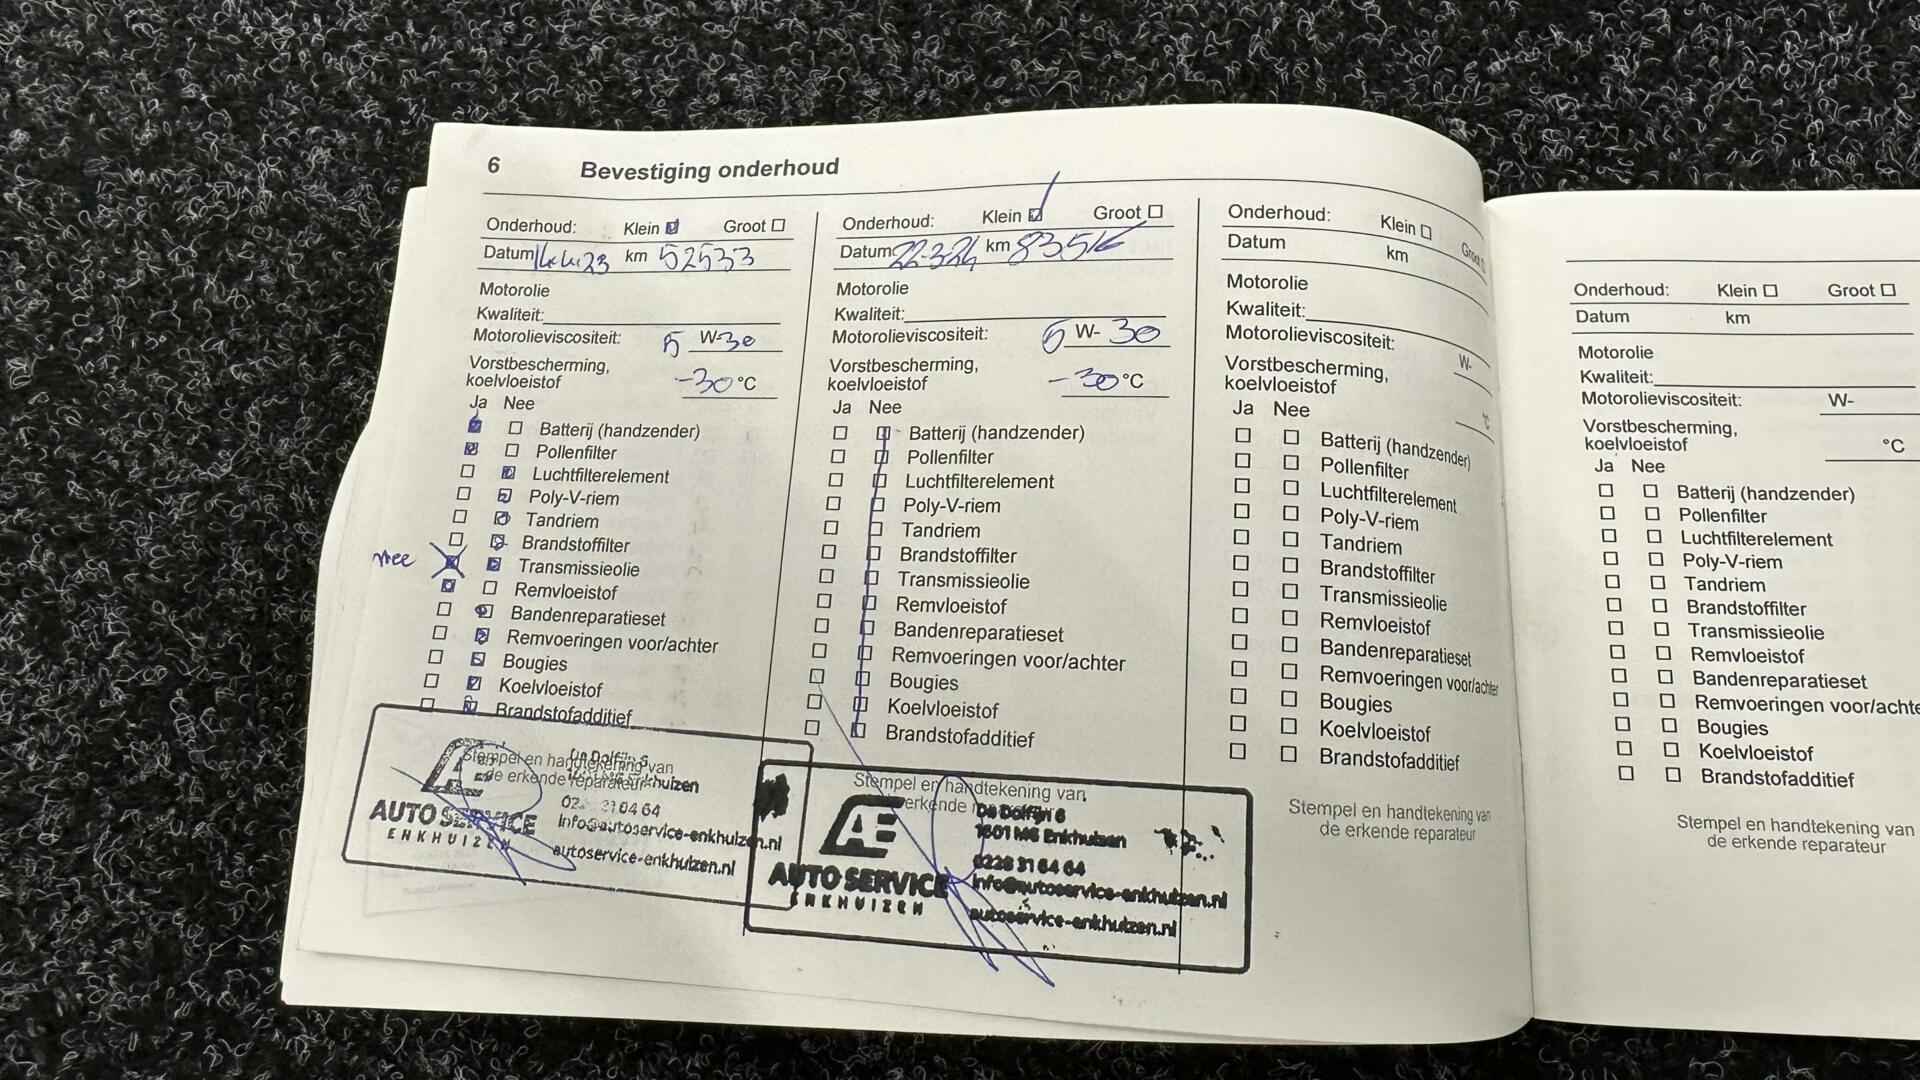 6 Bevestiging onderhoud
Onderhoud: Klein Groot
Datum km 52533
Motorolie
Kwaliteit:
Motorolieviscositeit: 5 W-30
Vorstbescherming,
koelvloeistof -30 °C
Ja Nee
Batterij (handzender)
Pollenfilter
Luchtfilterelement
Poly-V-riem
Tandriem
Brandstoffilter
nee Transmissieolie
Remvloeistof
Bandenreparatieset
Remvoeringen voor/achter
Bougies
Koelvloeistof
Brandstofadditief
Stempel en handtekening van
de erkende reparateur
AE
AUTO SERVICE
ENKHUIZEN
De Dolfijn 6
Enkhuizen
info@autoservice-enkhuizen.nl
autoservice-enkhuizen.nl
Onderhoud: Klein Groot
Datum 22-3-24 km
Motorolie
Kwaliteit:
Motorolieviscositeit: 5 W- 30
Vorstbescherming,
koelvloeistof -30 °C
Ja Nee
Batterij (handzender)
Pollenfilter
Luchtfilterelement
Poly-V-riem
Tandriem
Brandstoffilter
Transmissieolie
Remvloeistof
Bandenreparatieset
Remvoeringen voor/achter
Bougies
Koelvloeistof
Brandstofadditief
Stempel en handtekening van
erkende
AE
AUTO SERVICE
ENKHUIZEN
De Dolfijn 6
1601 MG Enkhuizen
0228 31 64 64
info@autoservice-enkhuizen.nl
autoservice-enkhuizen.nl
Onderhoud: Klein Groot
Datum km
Motorolie
Kwaliteit:
Motorolieviscositeit: W-
Vorstbescherming,
koelvloeistof °C
Ja Nee
Batterij (handzender)
Pollenfilter
Luchtfilterelement
Poly-V-riem
Tandriem
Brandstoffilter
Transmissieolie
Remvloeistof
Bandenreparatieset
Remvoeringen voor/achter
Bougies
Koelvloeistof
Brandstofadditief
Stempel en handtekening van
de erkende reparateur
Onderhoud: Klein Groot
Datum km
Motorolie
Kwaliteit:
Motorolieviscositeit: W-
Vorstbescherming,
koelvloeistof °C
Ja Nee
Batterij (handzender)
Pollenfilter
Luchtfilterelement
Poly-V-riem
Tandriem
Brandstoffilter
Transmissieolie
Remvloeistof
Bandenreparatieset
Remvoeringen voor/achte
Bougies
Koelvloeistof
Brandstofadditief
Stempel en handtekening van
de erkende reparateur